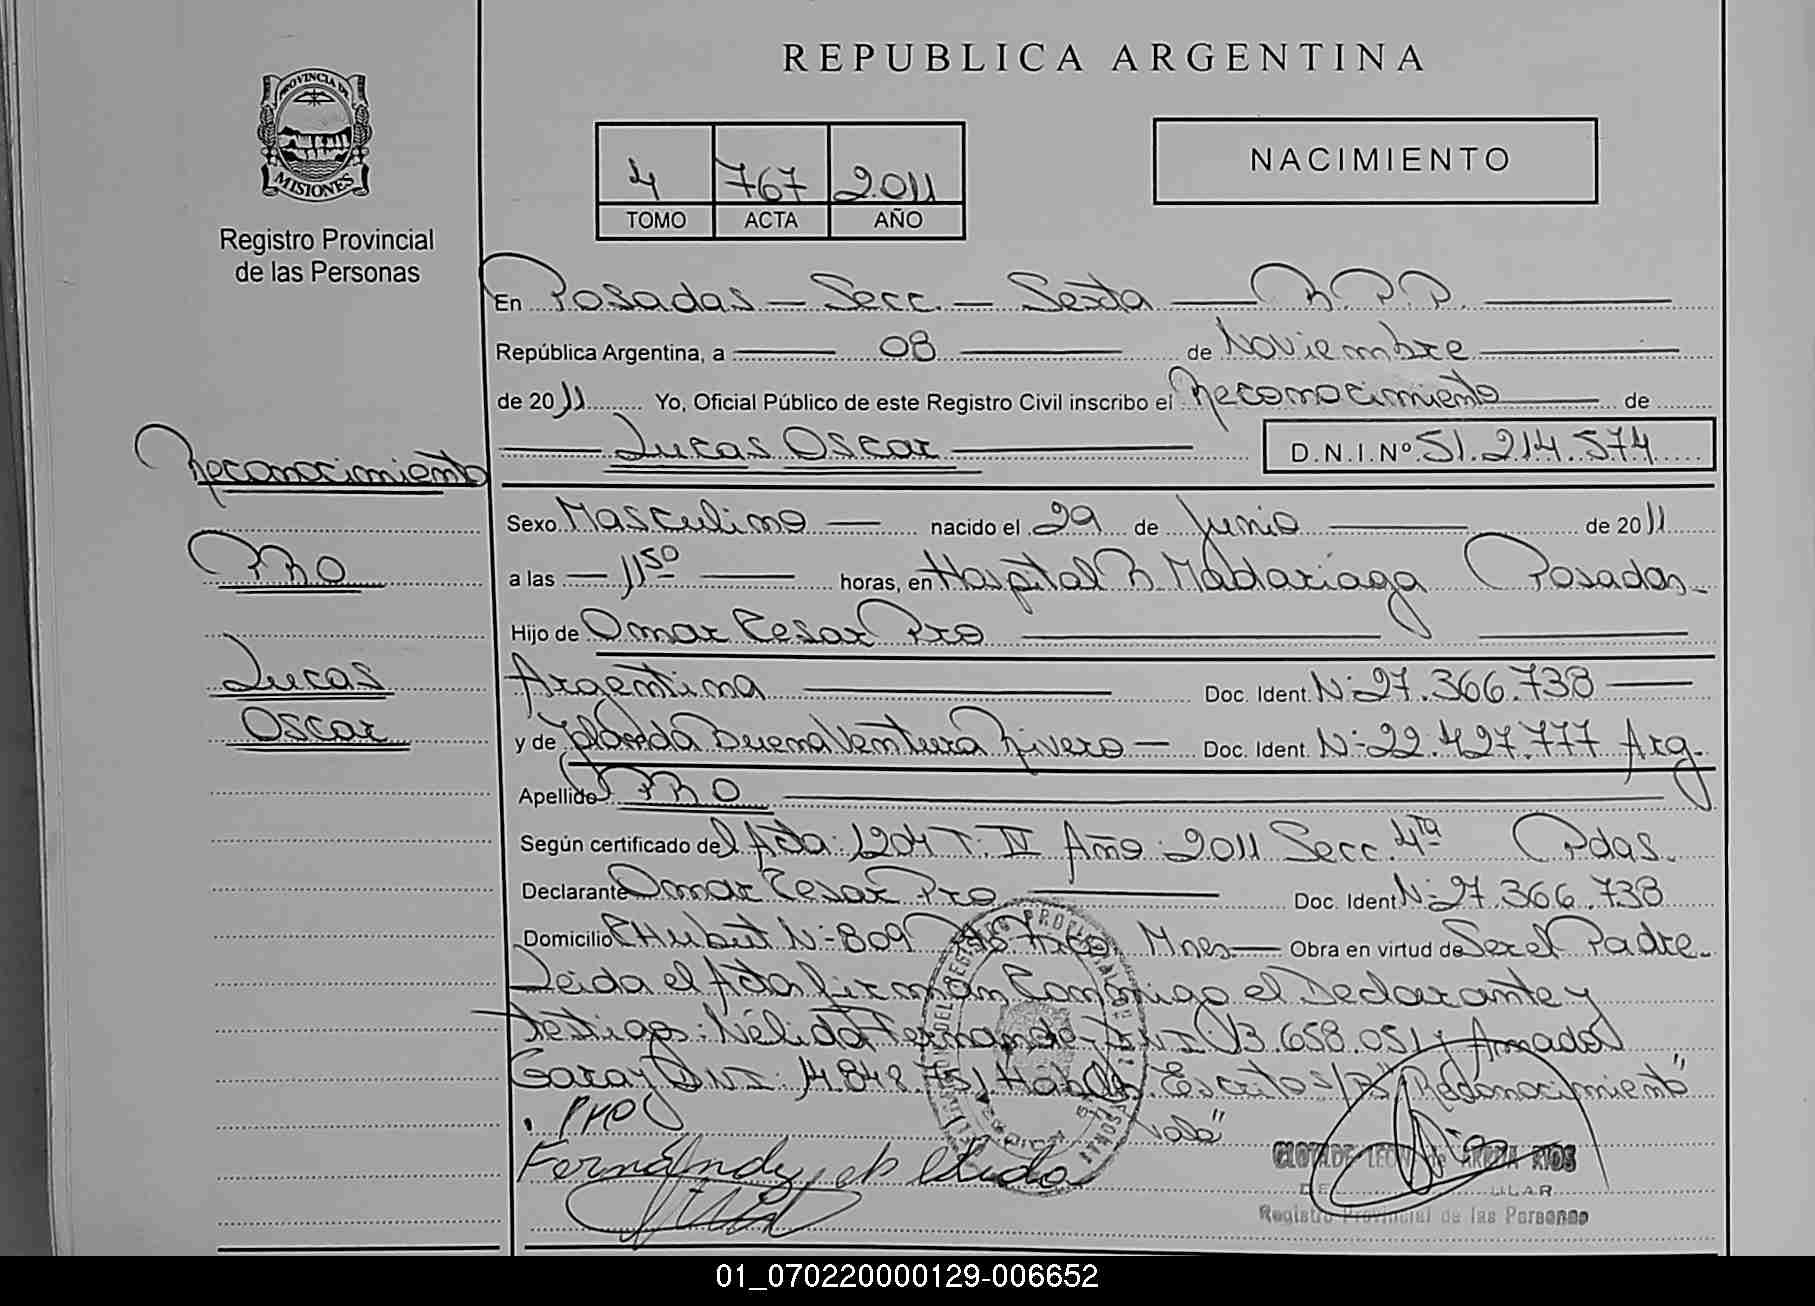 REPUBLICA ARGENTINA
PROVINCIA DE
MISIONES
Registro Provincial
de las Personas
4 767 2011
TOMO ACTA AÑO
NACIMIENTO
En Posadas — Secc. — Sexta — R.P.P.
República Argentina, a 08 de Noviembre
de 2011 Yo, Oficial Público de este Registro Civil inscribo el Reconocimiento de
Lucas Oscar D.N.I.Nº 51.214.574
Reconocimiento
PRO
Lucas
Oscar
Sexo Masculino — nacido el 29 de Junio de 2011
a las — 11 50 — horas, en Hospital R. Madariaga Posadas.
Hijo de Omar Cesar Pro
Argentina Doc. Ident. N: 27.366.738
y de Yolanda Buenaventura Rivero — Doc. Ident. N: 22.427.777 Arg.
Apellido PRO
Según certificado del Acta: 1204 T: IV Año: 2011 Secc. 4ta Pdas.
Declarante Omar Cesar Pro Doc. Ident N: 27.366.738
Domicilio CHubut N: 809 Mnes. — Obra en virtud de Ser el Padre.
Leida el Acta firman Conmigo el Declarante y
testigos: Nélida Fernande DNI: 13.658.051 y Amado
Garay DNI: 14.848.751 Escrito S/R "Reconocimiento"
Pro Vale"
Fernández Nelida
CLOTILDE RIOS
Registro Provincial de las Personas
01_070220000129-006652